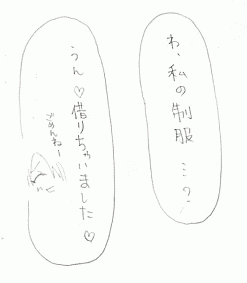 わ、私の制服…？
うん♡借りちゃいました♡
ごめんねー